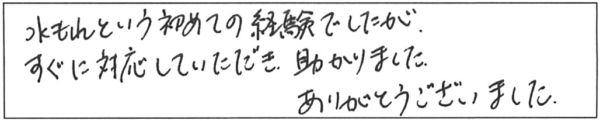 水もれという初めての経験でしたが.
すぐに対応していただき. 助かりました.
ありがとうございました.